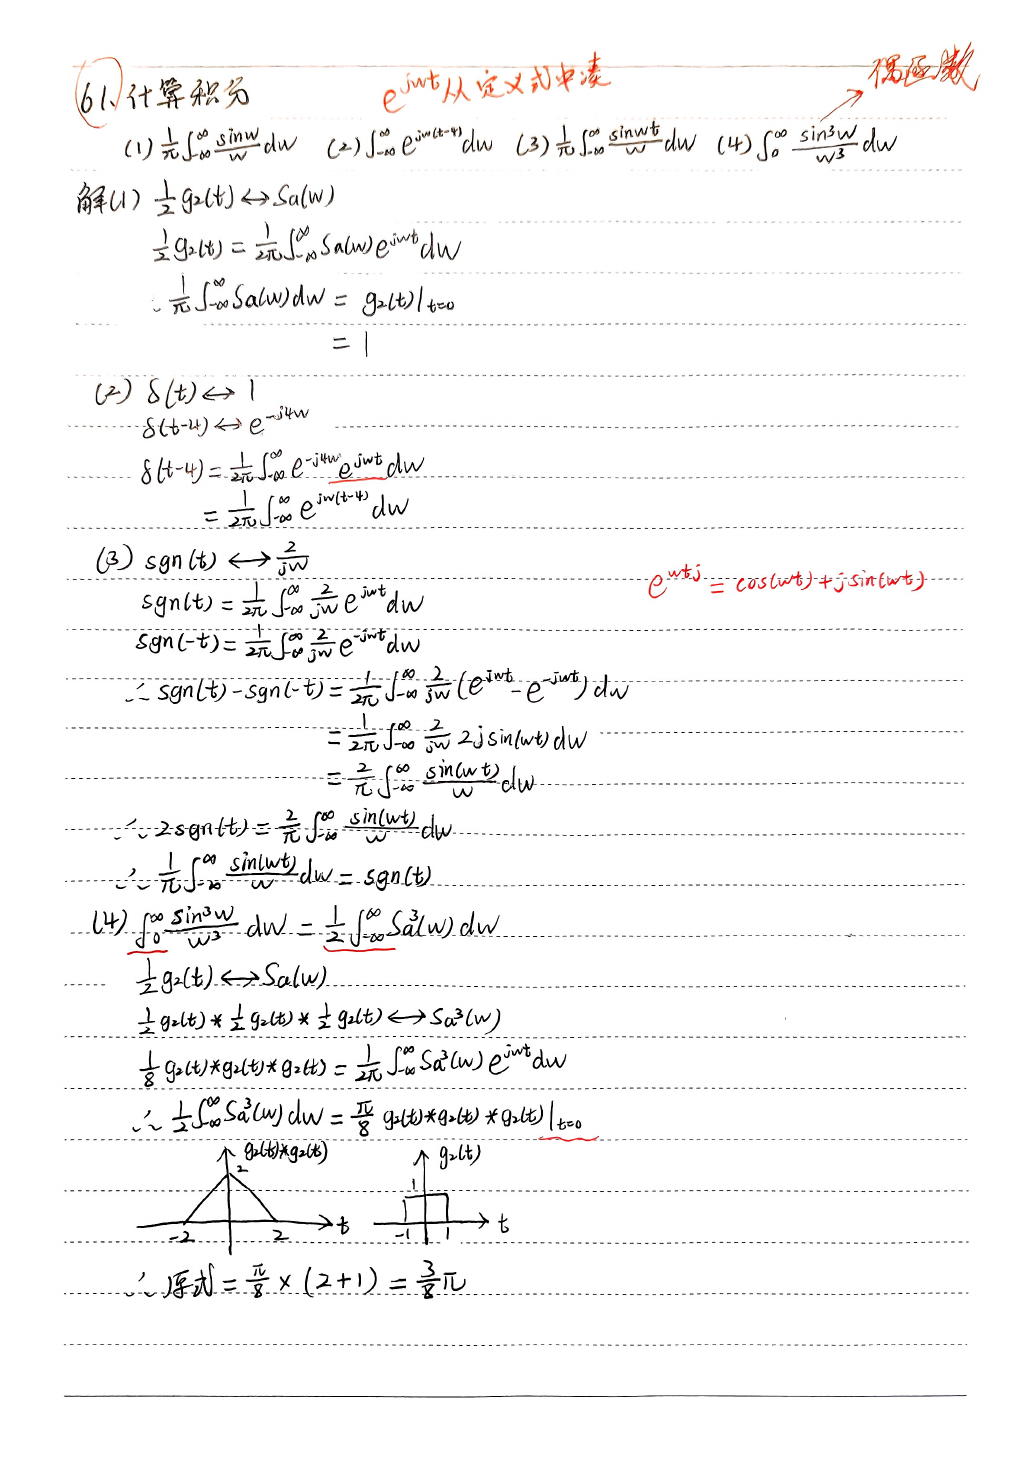 61. 计算积分
e^{jwt}从定义式中凑
偶函数
(1) \frac{1}{π}∫_{-∞}^{∞} \frac{sinw}{w}dw (2) ∫_{-∞}^{∞} e^{jw(t-4)}dw (3) \frac{1}{π}∫_{-∞}^{∞} \frac{sinwt}{w}dw (4) ∫_{0}^{∞} \frac{sin³w}{w³}dw
解(1) \frac{1}{2}g₂(t) ↔ Sa(w)
\frac{1}{2}g₂(t) = \frac{1}{2π}∫_{-∞}^{∞} Sa(w)e^{jwt}dw
∴ \frac{1}{π}∫_{-∞}^{∞} Sa(w)dw = g₂(t)|_{t=0}
= 1
(2) δ(t) ↔ 1
δ(t-4) ↔ e^{-j4w}
δ(t-4) = \frac{1}{2π}∫_{-∞}^{∞} e^{-j4w}e^{jwt}dw
= \frac{1}{2π}∫_{-∞}^{∞} e^{jw(t-4)}dw
(3) sgn(t) ↔ \frac{2}{jw}
e^{wtj} = cos(wt)+jsin(wt)
sgn(t) = \frac{1}{2π}∫_{-∞}^{∞} \frac{2}{jw}e^{jwt}dw
sgn(-t) = \frac{1}{2π}∫_{-∞}^{∞} \frac{2}{jw}e^{-jwt}dw
∴ sgn(t)-sgn(-t) = \frac{1}{2π}∫_{-∞}^{∞} \frac{2}{jw}(e^{jwt}-e^{-jwt})dw
= \frac{1}{2π}∫_{-∞}^{∞} \frac{2}{jw}2jsin(wt)dw
= \frac{2}{π}∫_{-∞}^{∞} \frac{sin(wt)}{w}dw
∴ 2sgn(t) = \frac{2}{π}∫_{-∞}^{∞} \frac{sin(wt)}{w}dw
∴ \frac{1}{π}∫_{-∞}^{∞} \frac{sin(wt)}{w}dw = sgn(t)
(4) ∫_{0}^{∞} \frac{sin³w}{w³}dw = \frac{1}{2}∫_{-∞}^{∞} Sa³(w)dw
\frac{1}{2}g₂(t) ↔ Sa(w)
\frac{1}{2}g₂(t)*\frac{1}{2}g₂(t)*\frac{1}{2}g₂(t) ↔ Sa³(w)
\frac{1}{8}g₂(t)*g₂(t)*g₂(t) = \frac{1}{2π}∫_{-∞}^{∞} Sa³(w)e^{jwt}dw
∴ \frac{1}{2}∫_{-∞}^{∞} Sa³(w)dw = \frac{π}{8}g₂(t)*g₂(t)*g₂(t)|_{t=0}
g₂(t)*g₂(t) g₂(t)
2 1
-2 2 t -1 1 t
∴ 原式 = \frac{π}{8}×(2+1) = \frac{3}{8}π